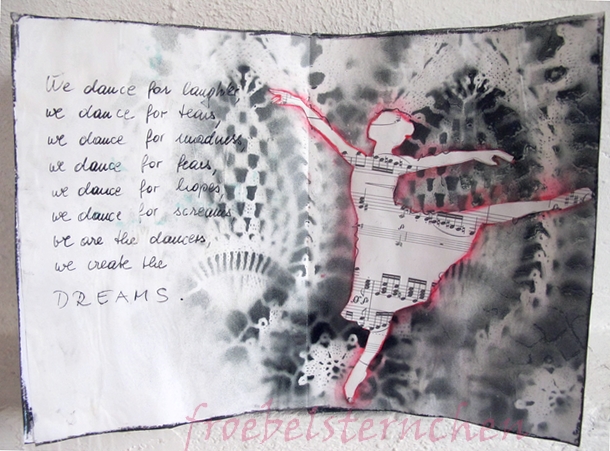 We dance for laughter
we dance for tears,
we dance for madness,
we dance for fears,
we dance for hopes
we dance for screams
we are the dancers,
we create the
DREAMS.
froebelsternchen